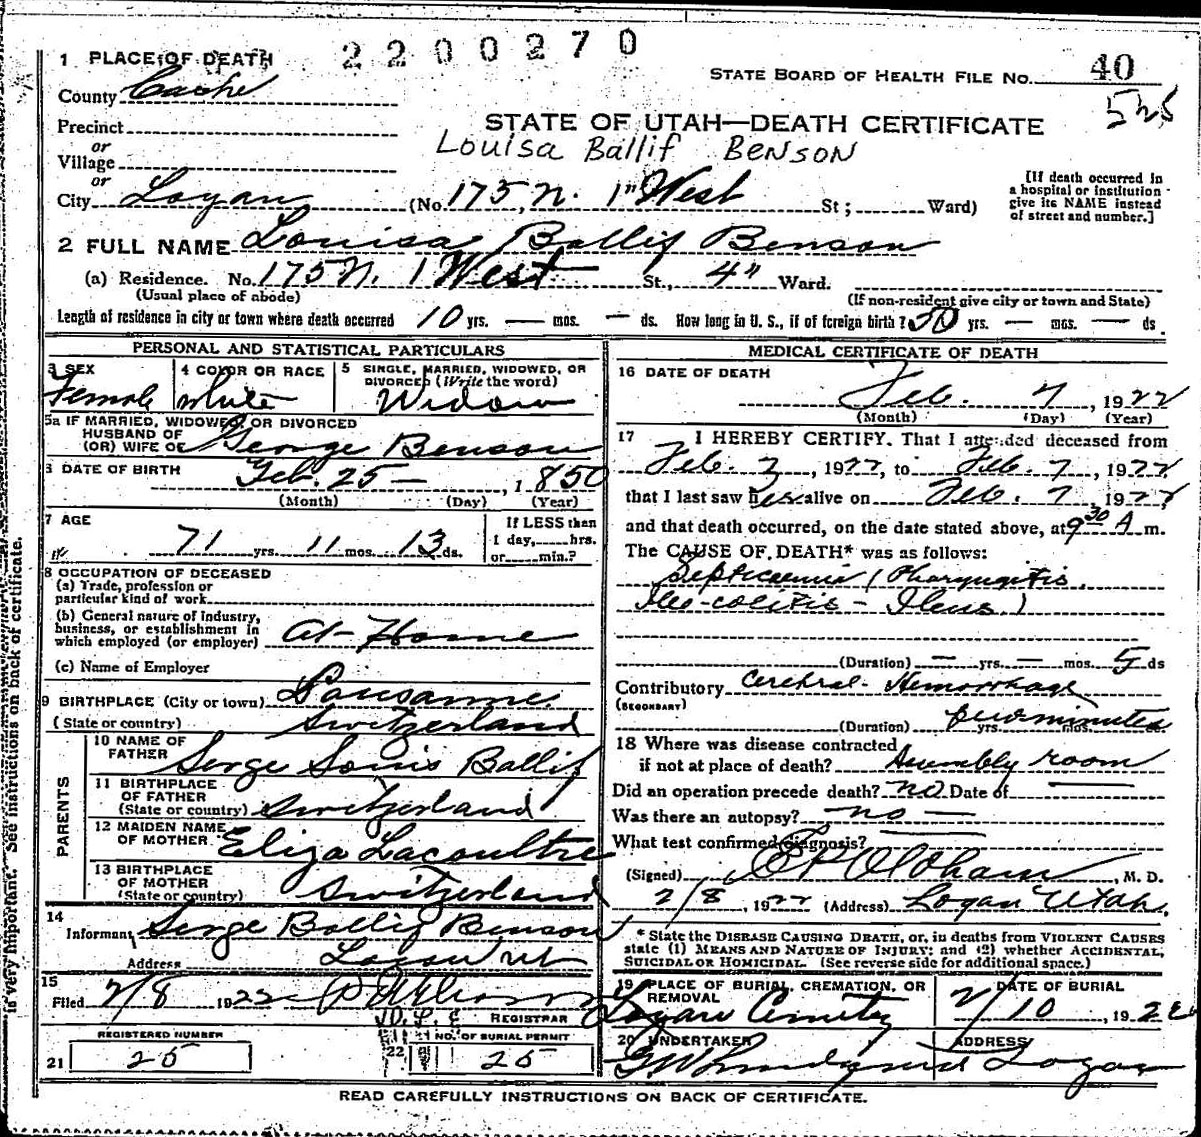 2200270
1 PLACE OF DEATH
STATE BOARD OF HEALTH FILE No. 40
County Cache
525
Precinct
STATE OF UTAH—DEATH CERTIFICATE
or
Louisa Ballif Benson
Village
or
City Logan (No. 175 N. 1" West St; Ward)
[If death occurred in
a hospital or institution
give its NAME instead
of street and number.]
2 FULL NAME Louisa Ballif Benson
(a) Residence. No. 175 N. 1 West St., 4" Ward.
(Usual place of abode)
(If non-resident give city or town and State)
Length of residence in city or town where death occurred 10 yrs. — mos. — ds. How long in U. S., if of foreign birth? 50 yrs. — mos. — ds.
PERSONAL AND STATISTICAL PARTICULARS
3 SEX
Female
4 COLOR OR RACE
white
5 SINGLE, MARRIED, WIDOWED, OR
DIVORCED (Write the word)
Widow
5a IF MARRIED, WIDOWED, OR DIVORCED
HUSBAND OF
(OR) WIFE OF George Benson
6 DATE OF BIRTH Feb. 25 — , 1850
(Month) (Day) (Year)
7 AGE
71 yrs. 11 mos. 13 ds.
If LESS than
1 day, hrs.
or min.?
8 OCCUPATION OF DECEASED
(a) Trade, profession or
particular kind of work
(b) General nature of industry,
business, or establishment in
which employed (or employer) At-Home
(c) Name of Employer
9 BIRTHPLACE (City or town) Lousanne
(State or country) Switzerland
PARENTS
10 NAME OF
FATHER Serge Louis Ballif
11 BIRTHPLACE
OF FATHER
(State or country) Switzerland
12 MAIDEN NAME
OF MOTHER Eliza Lacoultre
13 BIRTHPLACE
OF MOTHER
(State or country) Switzerland
14
Informant Serge Ballif Benson
Address Logan Ut
15
Filed 2/8 1922
REGISTRAR
REGISTERED NUMBER
21 25
22 NO. OF BURIAL PERMIT
25
MEDICAL CERTIFICATE OF DEATH
16 DATE OF DEATH
Feb. 7, 1922
(Month) (Day) (Year)
17 I HEREBY CERTIFY. That I attended deceased from
Feb. 2, 1922, to Feb. 7, 1922
that I last saw her alive on Feb. 7 1922
and that death occurred, on the date stated above, at 9 30 A m.
The CAUSE OF DEATH* was as follows:
Septicaemia (Pharyngitis.
Ileo-colitis - Ileus.)
(Duration) — yrs. — mos. 5 ds
Contributory Cerebral Hemorrhage
(SECONDARY)
few minutes
(Duration) yrs. mos. ds.
18 Where was disease contracted
if not at place of death? Assembly room
Did an operation precede death? no Date of —
Was there an autopsy? no —
What test confirmed diagnosis?
(Signed) E P Oldham, M. D.
2/8, 1922 (Address) Logan Utah.
* State the DISEASE CAUSING DEATH, or, in deaths from VIOLENT CAUSES
state (1) MEANS AND NATURE OF INJURY; and (2) whether ACCIDENTAL,
SUICIDAL OR HOMICIDAL. (See reverse side for additional space.)
19 PLACE OF BURIAL, CREMATION, OR
REMOVAL
Logan Cemetery
DATE OF BURIAL
2/10, 1922
20 UNDERTAKER
ADDRESS
Logan
READ CAREFULLY INSTRUCTIONS ON BACK OF CERTIFICATE.
is very important. See instructions on back of certificate.